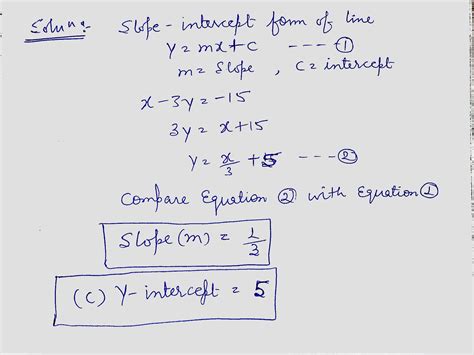 Soluns:-
Slope-intercept form of line
y = mx+c ---- ①
m = Slope , C = intercept
x-3y = -15
3y = x+15
y = x/3 +5 --- ②
Compare Equation ② with Equation ①
Slope (m) = 1/3
(C) Y-intercept = 5